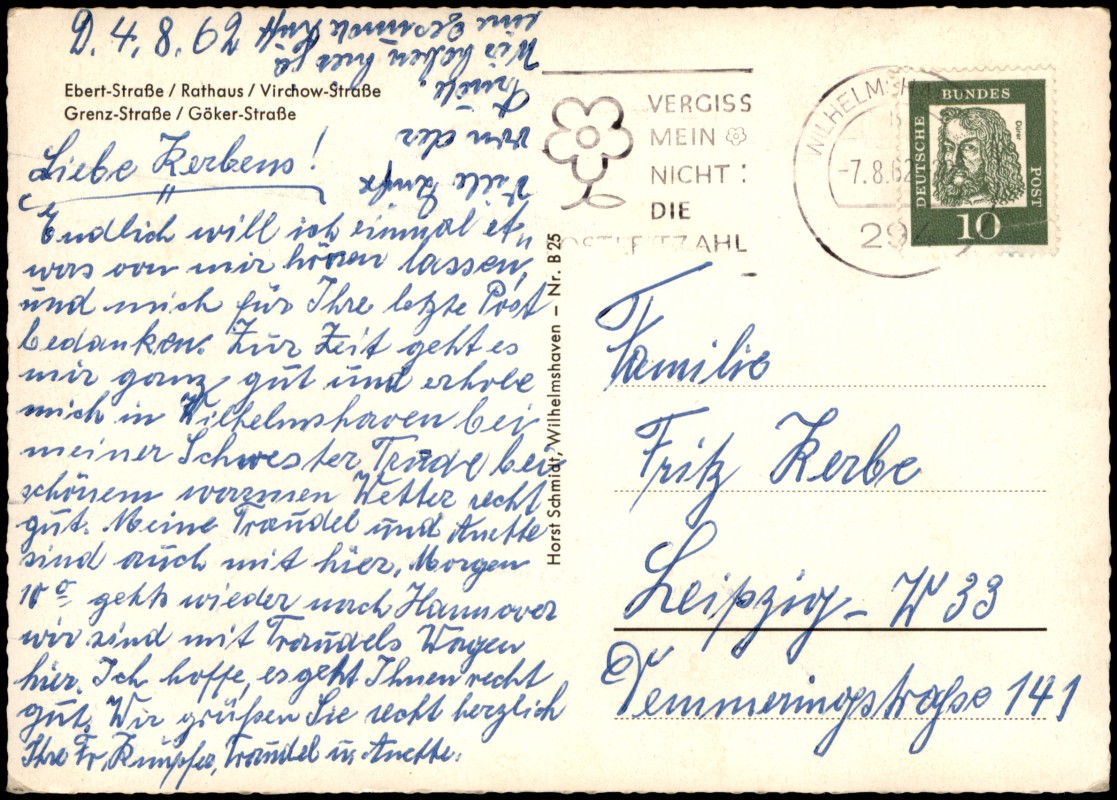 D. 4. 8. 62
Ebert-Straße / Rathaus / Virchow-Straße
Grenz-Straße / Göker-Straße
Liebe Kerbens!
Endlich will ich einmal et„
was von mir hören lassen,
und mich für Ihre letzte Post
bedanken. Zur Zeit geht es
mir ganz gut und erhole
mich in Wilhelmshaven bei
meiner Schwester Trude bei
schönem warmen Wetter recht
gut. Meine Traudel und Anette
sind auch mit hier, Morgen
10° gehts wieder nach Hannover
wir sind mit Traudels Wagen
hier. Ich hoffe, es geht Ihnen recht
gut. Wir grüßen Sie recht herzlich
Ihre Fr. Kümpfe, Traudel u. Anette.
Wir haben hier ja
eine gesunde Luft
von der
Horst Schmidt, Wilhelmshaven – Nr. B 25
VERGISS
MEIN
NICHT:
DIE
POSTLEITZAHL
WILHELMSHA
-7.8.62
294
DEUTSCHE
BUNDES
POST
Dürer
10
Familie
Fritz Kerbe
Leipzig - W 33
Demmeringstraße 141